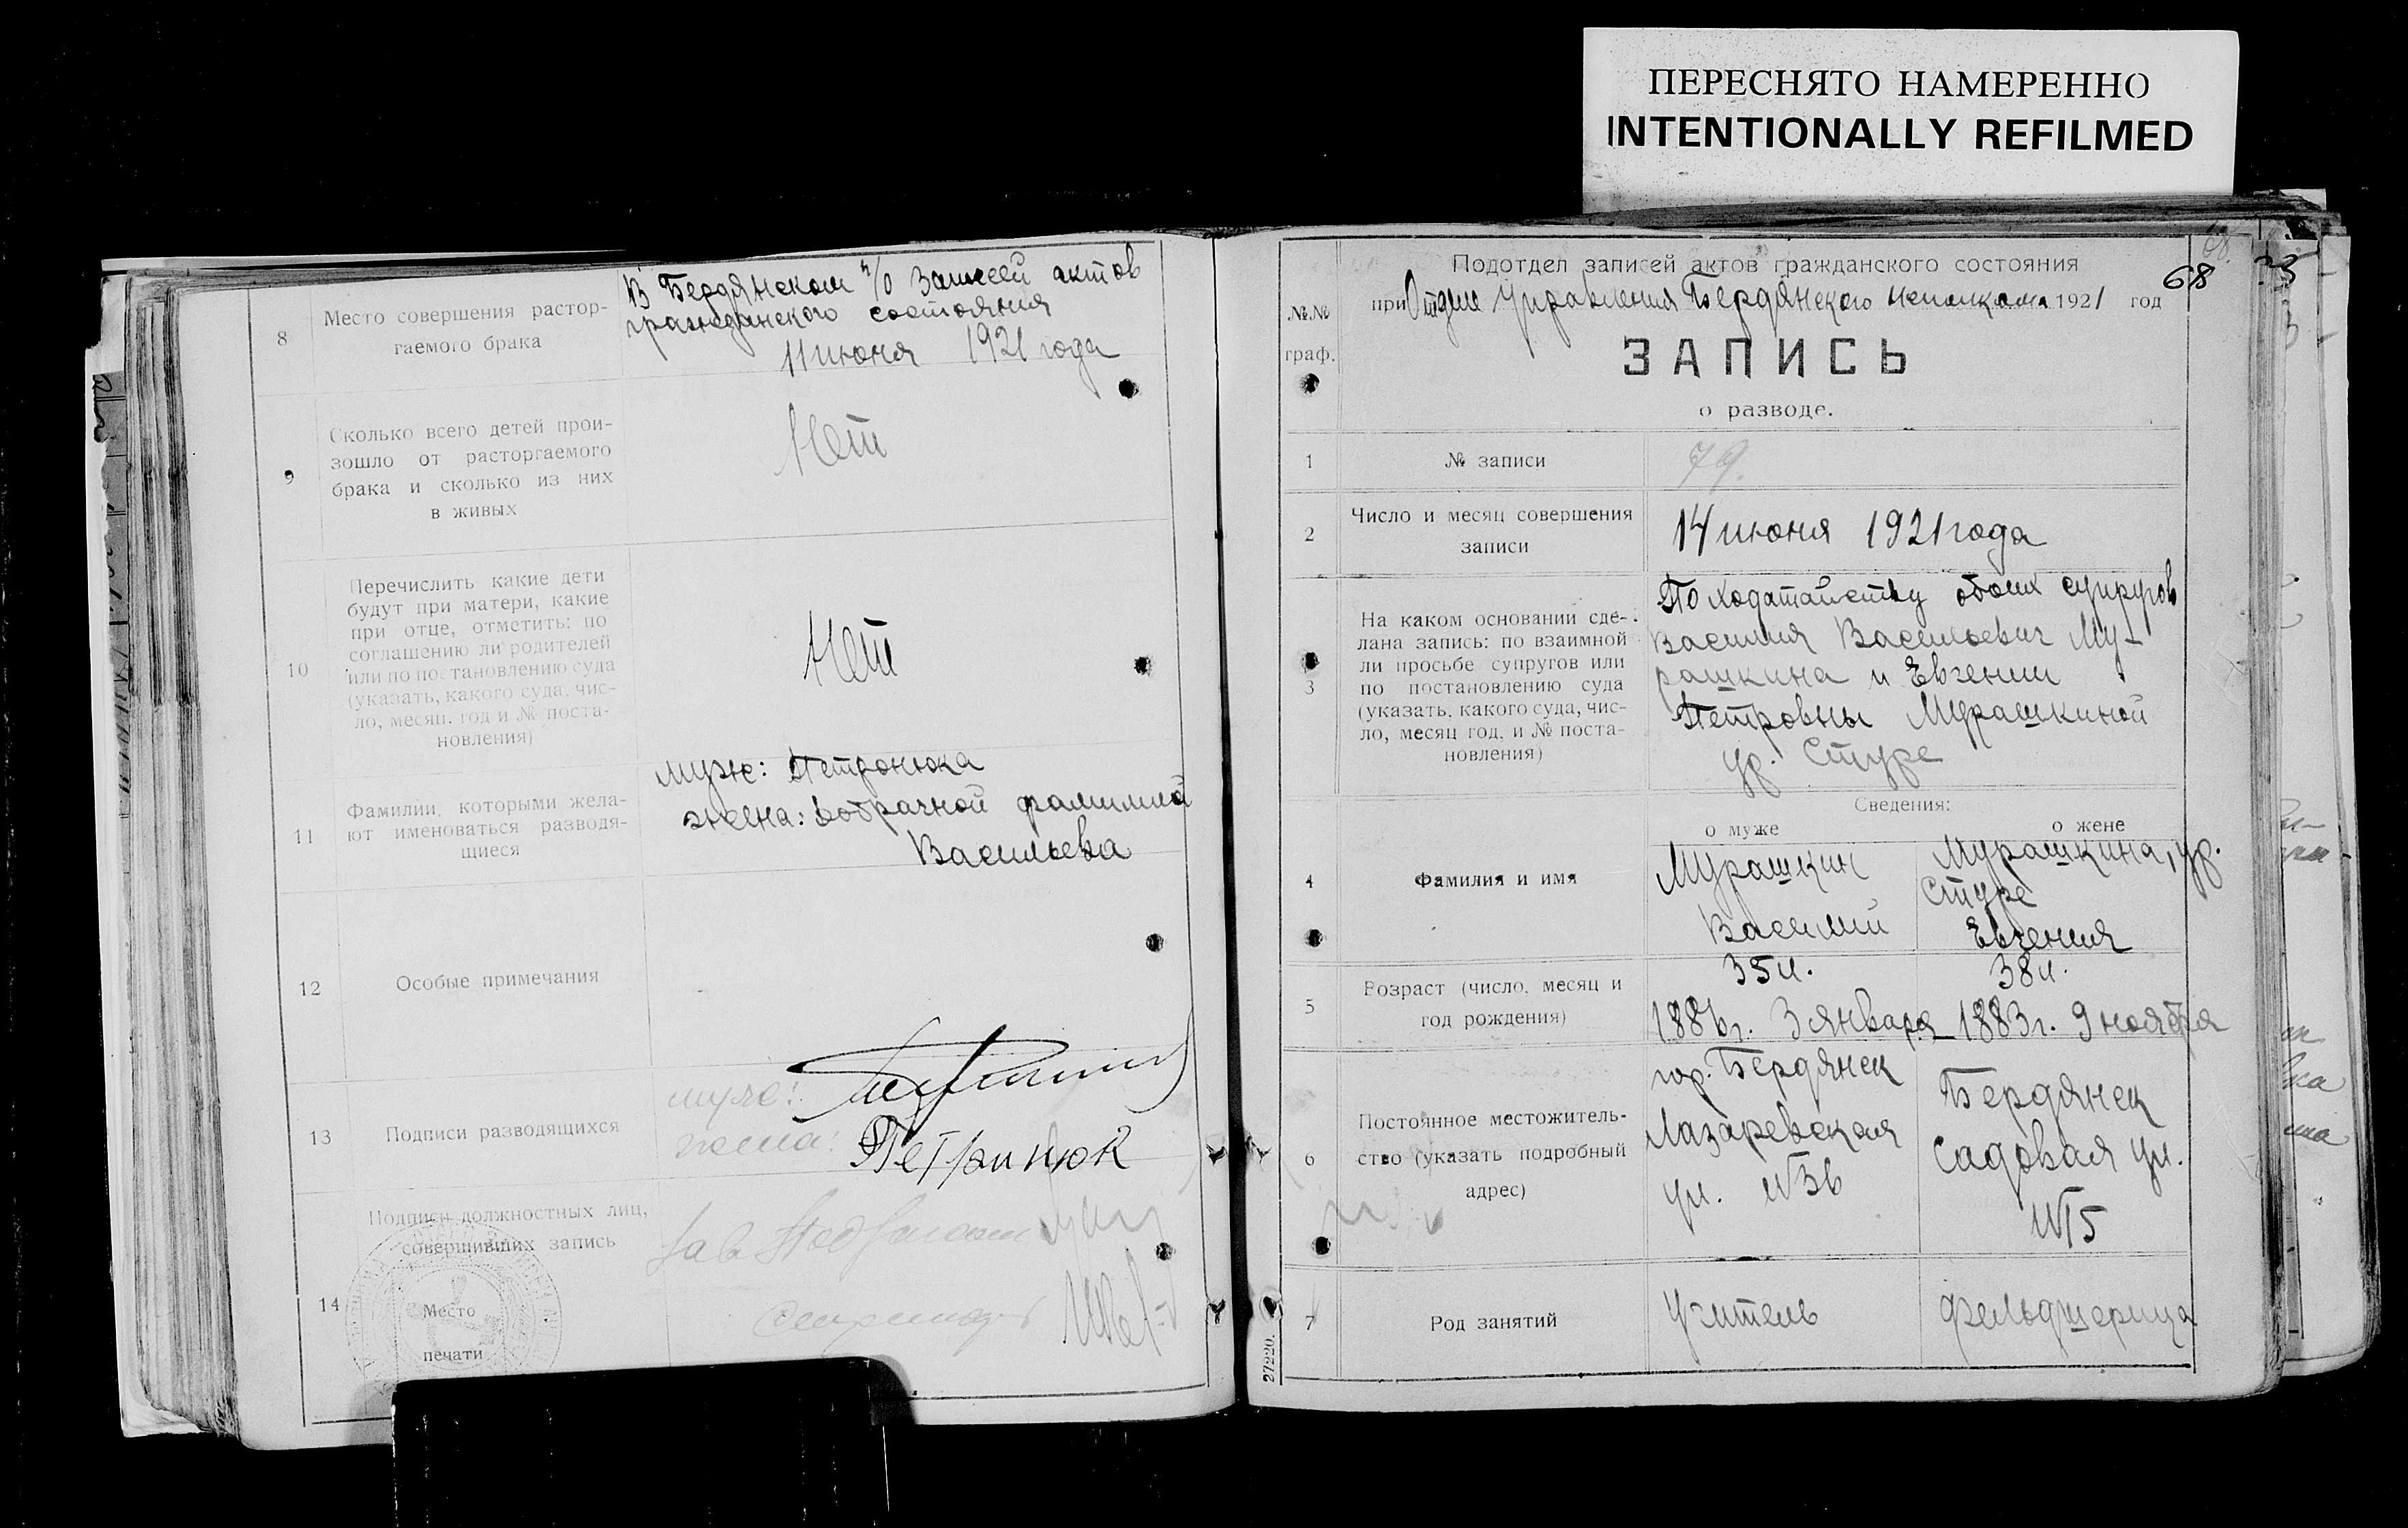 ПЕРЕСНЯТО НАМЕРЕННО
INTENTIONALLY REFILMED
8
Место совершения растор-
гаемого брака
В Бердянском п/о Записей актов
гражданского состояния
11 июня 1921 года
9
Сколько всего детей прои-
зошло от расторгаемого
брака и сколько из них
в живых
Нет
10
Перечислить какие дети
будут при матери, какие
при отце, отметить: по
соглашению ли родителей
или по постановлению суда
(указать, какого суда, чис-
ло, месяц, год и № поста-
новления)
Нет
11
Фамилии, которыми жела-
ют именоваться разводя-
щиеся
муж: Петронюка
жена: добрачной фамилией
Васильева
12
Особые примечания
13
Подписи разводящихся
муже:
жена:
Петронюк
14
Подписи должностных лиц,
совершивших запись
Место
печати
Зав Подотделом
Секретарь
68
№№
граф.
Подотдел записей актов гражданского состояния
при Отделе Управления Бердянского исполкома 1921 год
ЗАПИСЬ
о разводе.
1
№ записи
79.
2
Число и месяц совершения
записи
14 июня 1921 года
3
На каком основании сде-
лана запись: по взаимной
ли просьбе супругов или
по постановлению суда
(указать, какого суда, чис-
ло, месяц год, и № поста-
новления)
По ходатайству обоих супругов
Василия Васильевич Му-
рашкина и Евгении
Петровны Мурашкиной
ур. Стуре
Сведения:
о муже
о жене
4
Фамилия и имя
Мурашкин
Василий
Мурашкина, ур.
Стуре
Евгения
5
Возраст (число, месяц и
год рождения)
35 л.
1886 г. 3 января
38 л.
1883 г. 9 ноября
6
Постоянное местожитель-
ство (указать подробный
адрес)
гор. Бердянск
Лазаревская
ул. №36
Бердянск
Садовая ул.
№15
7
Род занятий
Учитель
Фельдшерица
27220.